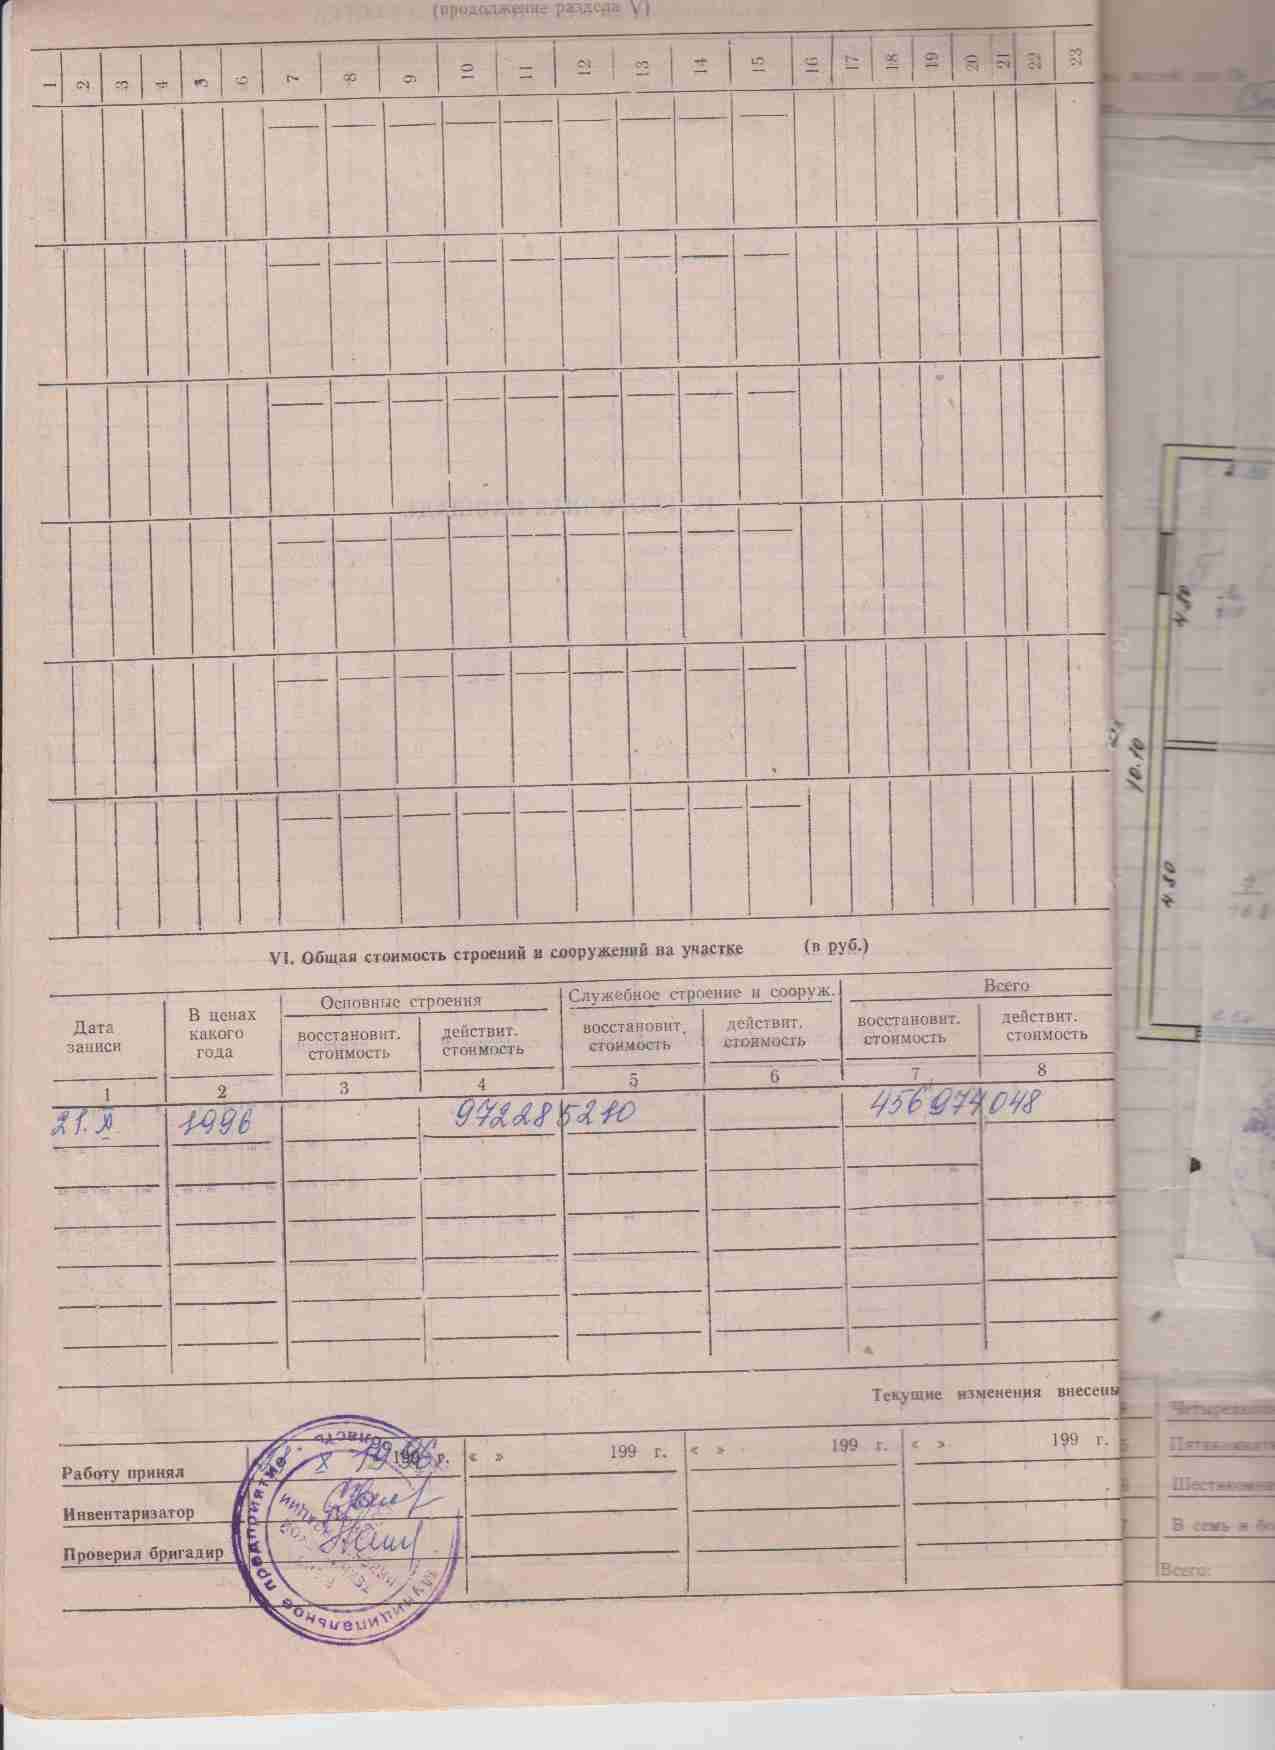 (продолжение раздела V)
1 2 3 4 5 6 7 8 9 10 11 12 13 14 15 16 17 18 19 20 21 22 23
VI. Общая стоимость строений и сооружений на участке (в руб.)
Дата записи
В ценах какого года
Основные строения
Служебное строение и сооруж.
Всего
восстановит. стоимость
действит. стоимость
восстановит. стоимость
действит. стоимость
восстановит. стоимость
действит. стоимость
1 2 3 4 5 6 7 8
21. XI 1996 972285210 456974048
Текущие изменения внесены
Работу принял X 1996 199 г. « » 199 г. « » 199 г. « » 199 г.
Инвентаризатор
Проверил бригадир
Муниципальное предприятие
область
4.80
10.10
4.80
Четырехкомн
Пятикомнатн
Шестикомн
В семь и бо
Всего: